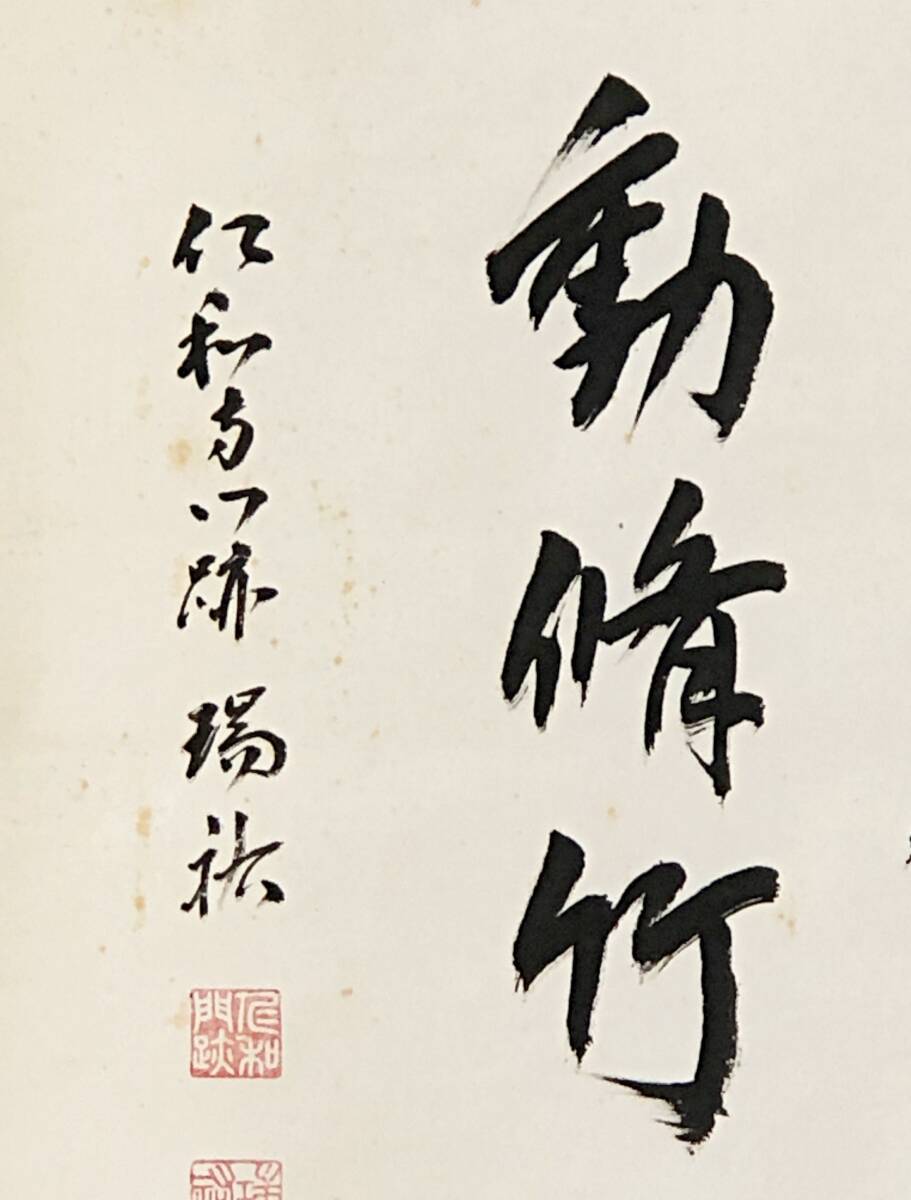 動脩竹
仁和寺門跡 瑞祐
仁和
門跡